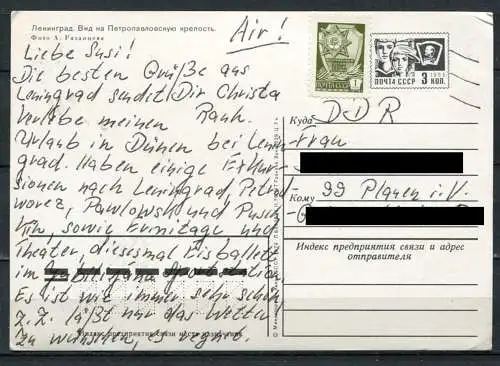 Ленинград. Вид на Петропавловскую крепость.
Фото А. Рязанцева
Air!
Liebe Susi!
Die besten Grüße aus
Leningrad sendet Dir Christa
Verlebe meinen
Urlaub in Dünen bei Lenin-
grad. Haben einige Exkur-
sionen nach Leningrad, Petrod-
worez, Pawlowsk und Pusch-
kin, sowie Ermitage und
Theater, diesesmal Eisballett
im
Es ist wie immer sehr schön
z. Z. läßt nur das Wetter
zu wünschen, es regnet.
ПОЧТА СССР 3 КОП.
1
Куда DDR
Frau
Кому 99 Plauen i. V.
Индекс предприятия связи и адрес
отправителя
Индекс предприятия связи места назначения